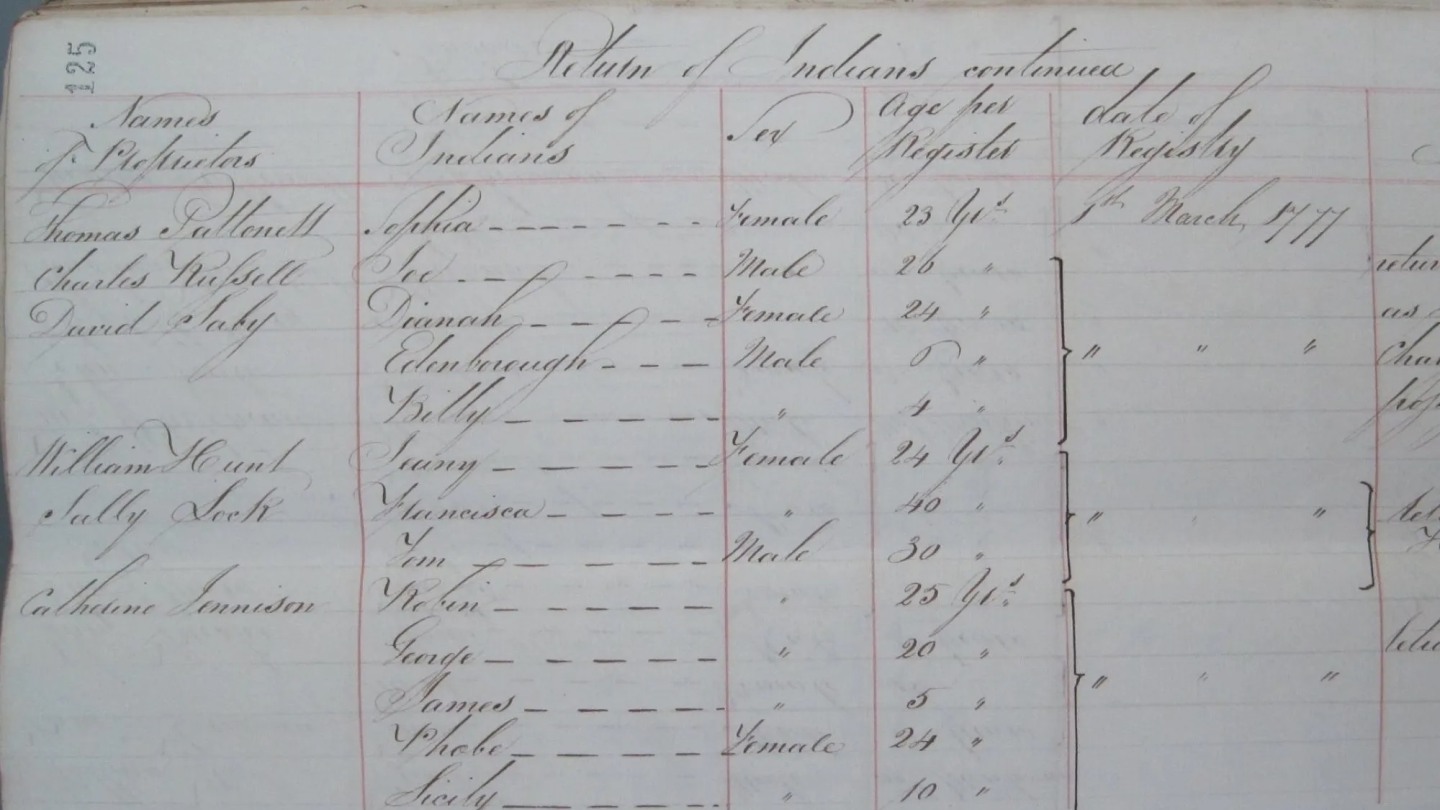 125
Return of Indians continued
Names of Proprietors Names of Indians Sex Age per Register date of Registry
Thomas Pattonett Sophia Female 23 Yrs. 1st March, 1777
Charles Russell Joe Male 26 "
David Saby Dianah Female 24 " as
Edenborough Male 6 " " " "
Billy " 4 "
William Hunt Jenny Female 24 Yrs.
Sally Lock Francisca " 40 " " " "
Tom Male 30 "
Catherine Jennison Robin " 25 Yrs.
George " 20 "
James " 5 " " " "
Phobe Female 24 "
Sicily " 10 "